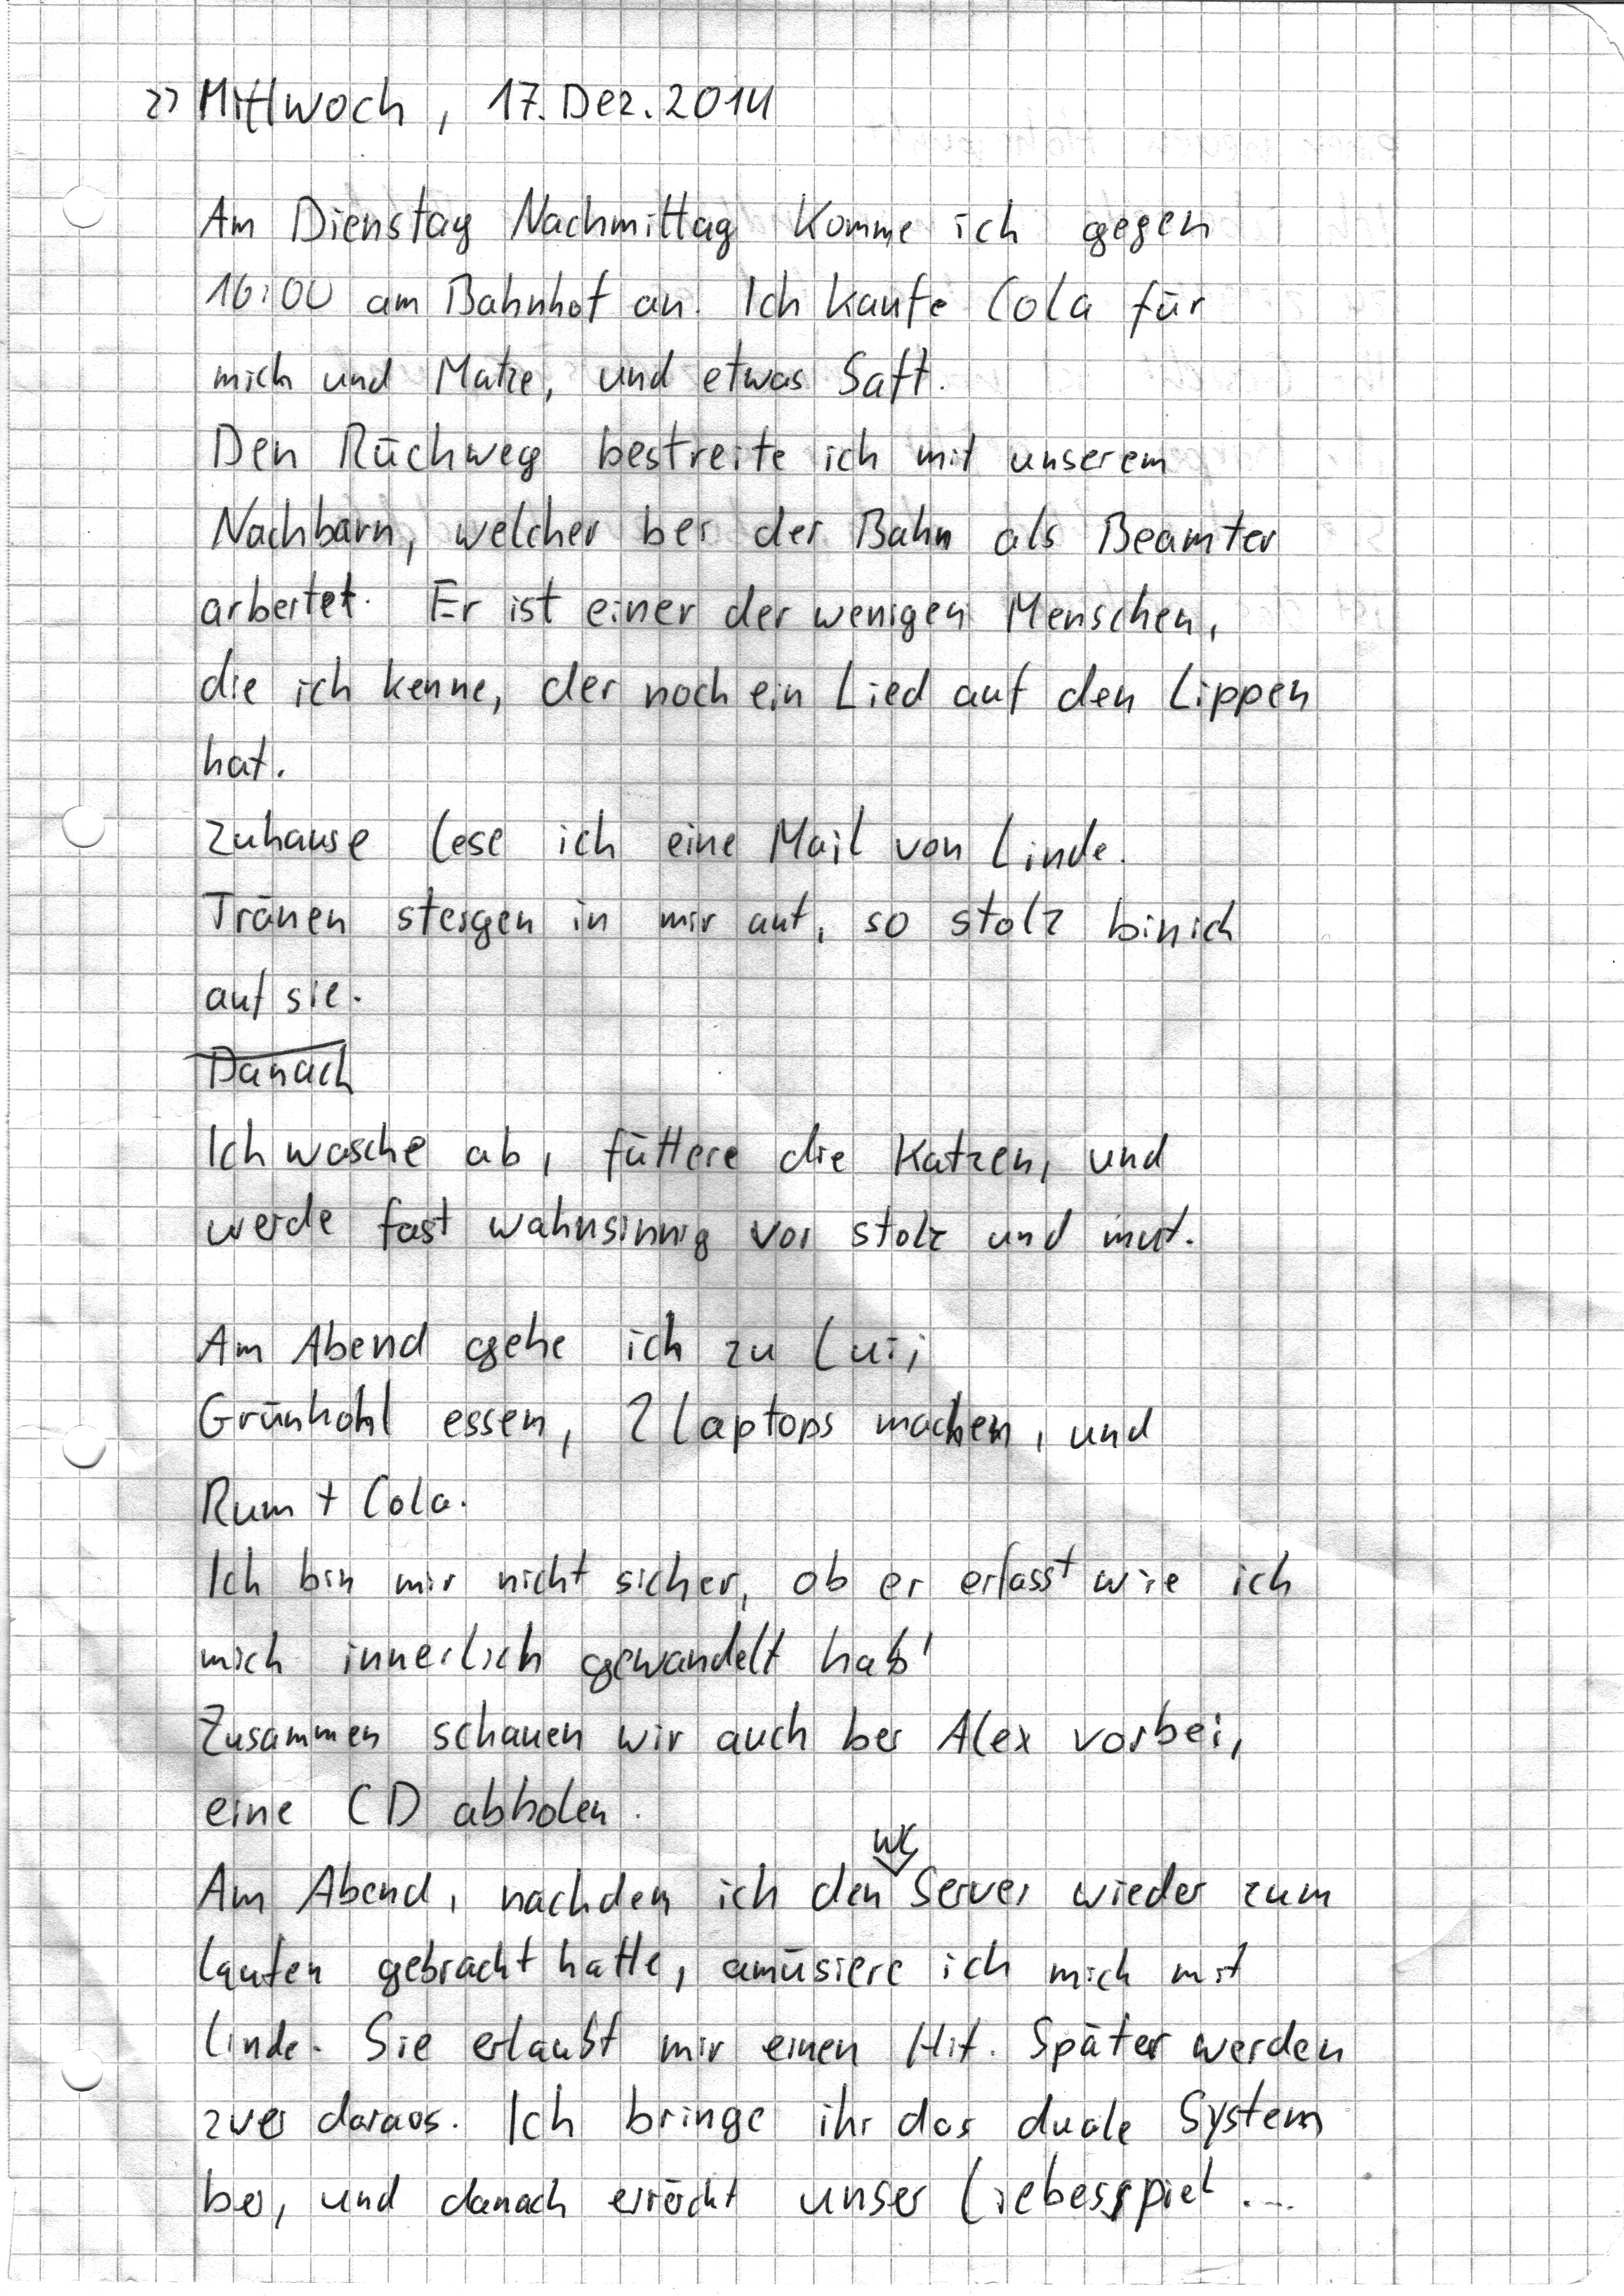 >> Mittwoch, 17. Dez. 2014
Am Dienstag Nachmittag komme ich gegen
16:00 am Bahnhof an. Ich kaufe Cola für
mich und Matze, und etwas Saft.
Den Rückweg bestreite ich mit unserem
Nachbarn, welcher bei der Bahn als Beamter
arbeitet. Er ist einer der wenigen Menschen,
die ich kenne, der noch ein Lied auf den Lippen
hat.
Zuhause lese ich eine Mail von Linde.
Tränen steigen in mir auf, so stolz bin ich
auf sie.
Danach
Ich wasche ab, füttere die Katzen, und
werde fast wahnsinnig vor stolz und mut.
Am Abend gehe ich zu Lui;
Grünkohl essen, 2 Laptops machen, und
Rum + Cola.
Ich bin mir nicht sicher, ob er erfasst wie ich
mich innerlich gewandelt hab'
Zusammen schauen wir auch bei Alex vorbei,
eine CD abholen.
WG
Am Abend, nachdem ich den Server wieder zum
laufen gebracht hatte, amüsiere ich mich mit
Linde. Sie erlaubt mir einen Hit. Später werden
zwei daraos. Ich bringe ihr das duale System
bei, und danach unser Liebesspiel ...